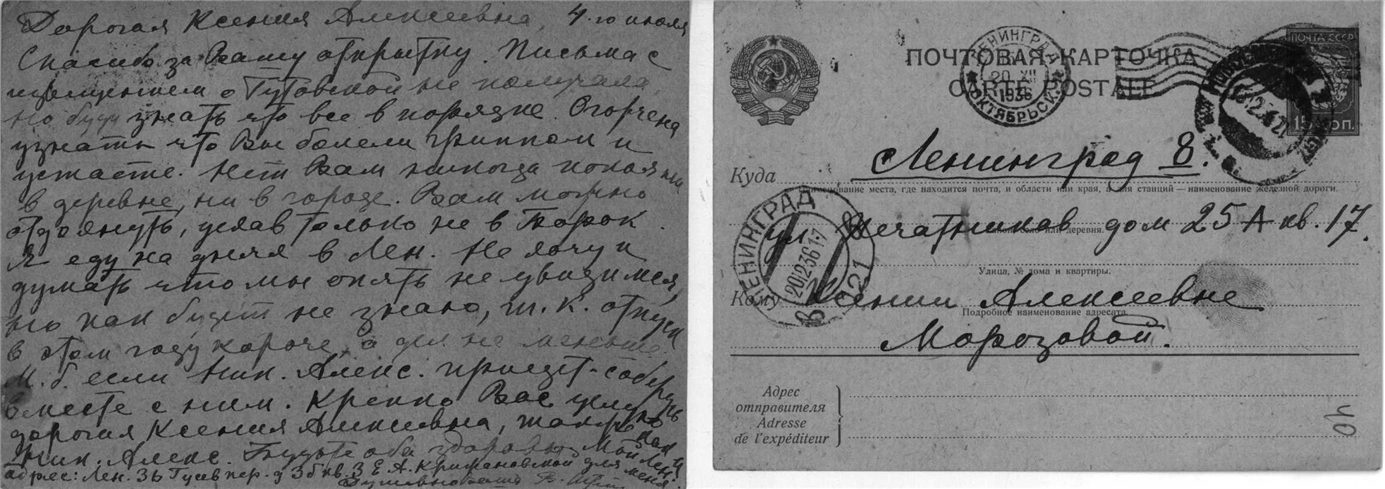 Дорогая Ксения Алексеевна, 4-го июля
Спасибо за Вашу открытку. Письма с
извещением о Гутовской не получала,
но буду знать что все в порядке. Огорчена
узнать что Вы болели гриппом и
устаете. Нет Вам никогда покоя ни
в деревне, ни в городе. Вам можно
отдохнуть, уехав только не в
Я еду на днях в Лен. Не хочу и
думать что мы опять не увидимся,
но как будет не знаю, т.к. отпуск
в этом году короче, а дел не меньше.
М.б. если Ник. Алекс. приедет – соберусь
вместе с ним. Крепко Вас целую
дорогая Ксения Алексеевна, также
Ник. Алекс. Будьте оба здоровы. Мой Лен.
адрес: Лен. 36 Гусев пер. д 3б кв. 3 Е.А. Крижановской для меня.
ПОЧТОВАЯ КАРТОЧКА
CARTE POSTALE
ПОЧТА СССР
15 КОП.
ЛЕНИНГРАД
20 XII
1936
ОКТЯБРЬСК.
Ленинград 8.
Куда
наименование места, где находится почта, и области или края, а для станций — наименование железной дороги.
ЛЕНИНГРАД
201236 17
221
ул. Печатников дом 25А кв. 17.
или деревня.
Улица, № дома и квартиры.
Кому Ксении Алексеевне
Подробное наименование адресата.
Морозовой.
Адрес
отправителя
Adresse
de l'expéditeur
40